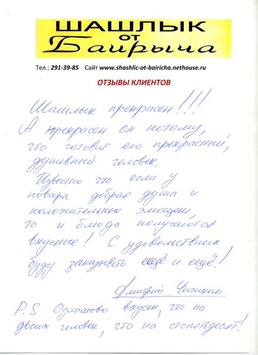 ШАШЛЫК
от
Байрыча
Тел.: 291-39-85 Сайт www.shashlic-ot-bairicha.nethouse.ru
ОТЗЫВЫ КЛИЕНТОВ
Шашлык прекрасен!!!
А прекрасен он потому,
что готовит его прекрасный,
душевный человек.
Известно что если у
повара добрая душа и
положительные эмоции,
то и блюда получаются
вкусные! С удовольствием
буду заказывать ещё и ещё!
Дмитрий
P.S Одинаково вкусен, что на
двоих человек, что на стопятьдесят!